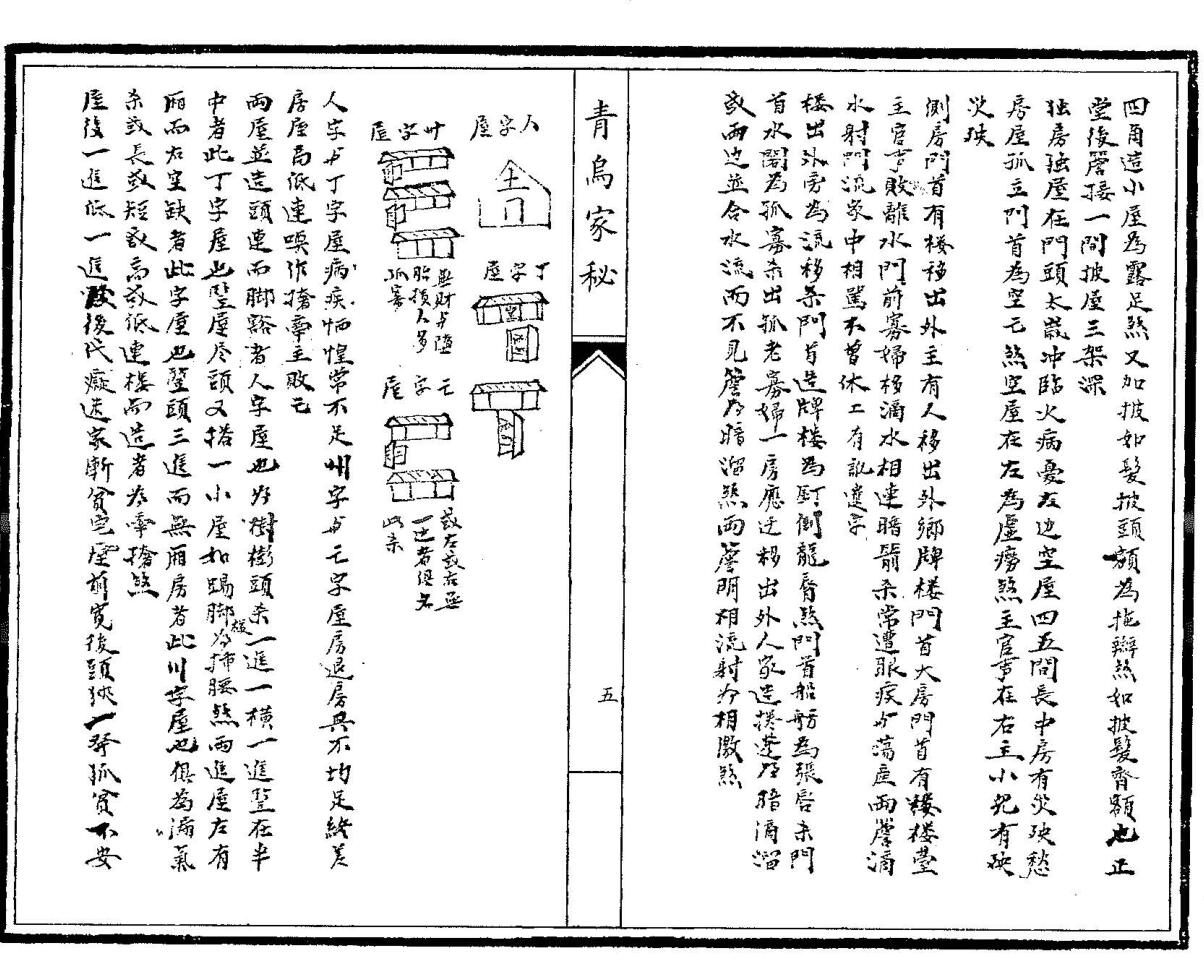 四角造小屋為露足煞又加披如髮披頭額為拖辮煞如披髮齊額也正
堂後簷接一間披屋三架深
独房独屋在門頭太歲冲臨火病憂左边空屋四五間長中房有災殃愁
房屋孤立門首為空亡煞空屋在左為虛癆煞主官事在右主小兒有殃
災殃
側房門首有楼移出外主有人移出外鄉牌楼門首大房門首有楼楼臺
主官事敗離水門前寡婦移滴水相連暗箭杀常遭眼疾与蕩産両簷滴
水射門流家中相罵不曾休工有訛違字
楼出外旁為流移杀門首造牌楼為倒龍唇煞門首船舫為張唇杀門
首水閣為孤寡杀出孤老寡婦一房應迁移出外人家造為暗滴溜
或両边並合水流而不見簷為暗溜煞両簷明相流射為相激煞
青烏家秘
五
人字屋
丁字屋
卅字屋
無財与墮
胎損人多
孤寡
亡字屋
或左或右無
一边者總名
此杀
人字与丁字屋病疾恓惶常不足州字与亡字屋房退房興不均足終羌
房屋高低連喚作擔牽主敗亡
両屋並造頭連而脚豁者人字屋也為樹頭杀一進一横一進竪在半
中者此丁字屋也竪屋尽頭又搭一小屋如踢脚様為插腰煞両進屋左有
廂而右空缺者此字屋也竪頭三進而無廂房者此川字屋也俱為漏氣
杀或長或短或高或低連接而造者為牽擔煞
屋後一進低一進後代癡迷家漸貧宅屋前寛後頭狹一發孤貧不安